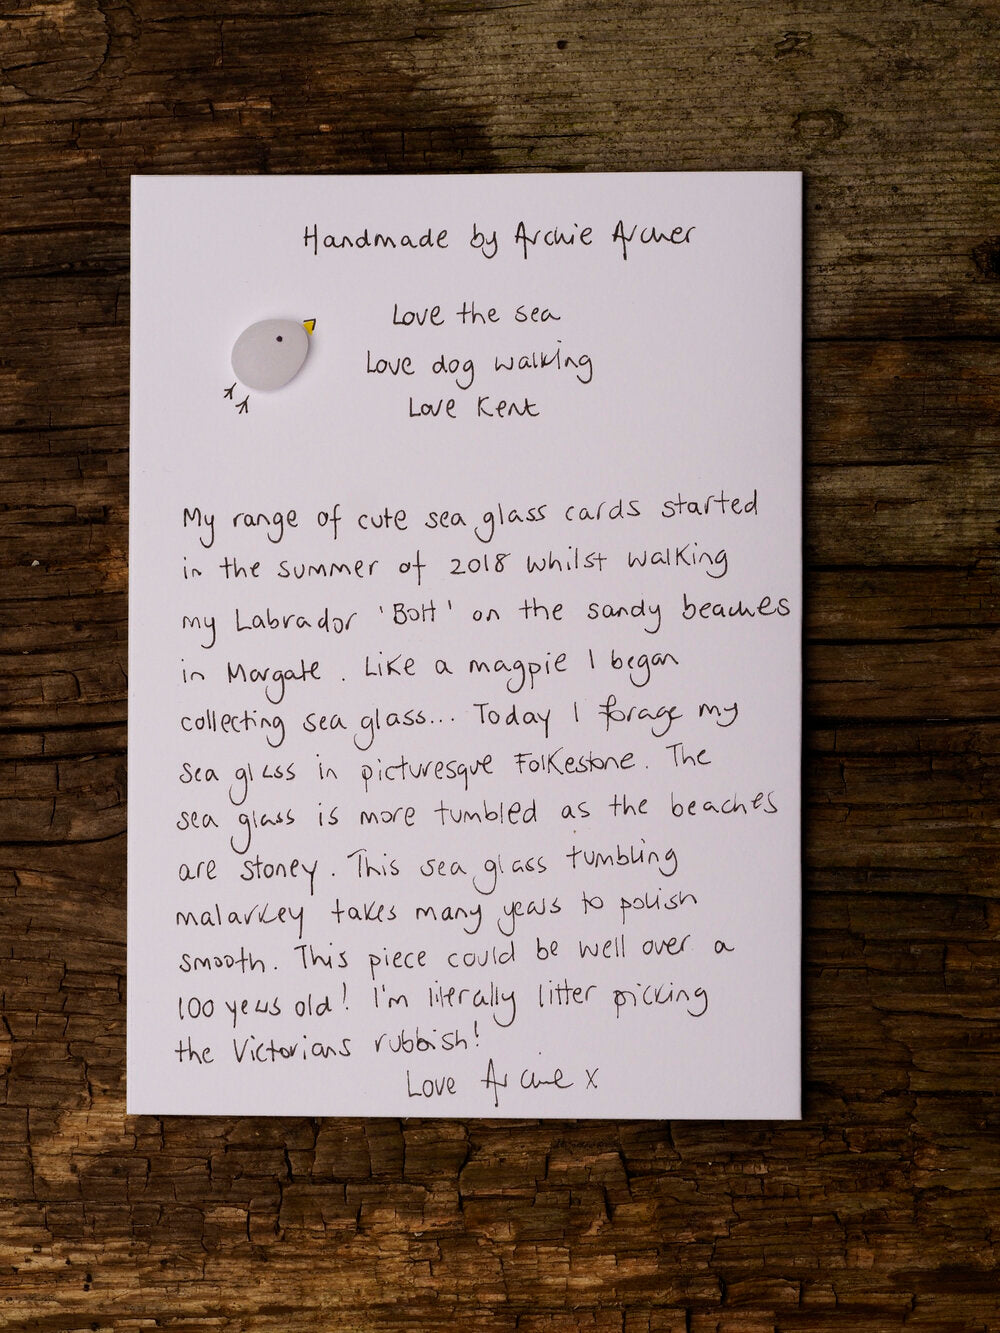 Handmade by Archie Archer
Love the sea
Love dog walking
Love Kent
My range of cute sea glass cards started
in the summer of 2018 whilst walking
my Labrador 'Bolt' on the sandy beaches
in Margate. Like a magpie I began
collecting sea glass... Today I forage my
sea glass in picturesque Folkestone. The
sea glass is more tumbled as the beaches
are stoney. This sea glass tumbling
malarkey takes many years to polish
smooth. This piece could be well over a
100 years old! I'm literally litter picking
the Victorians rubbish!
Love Archie x